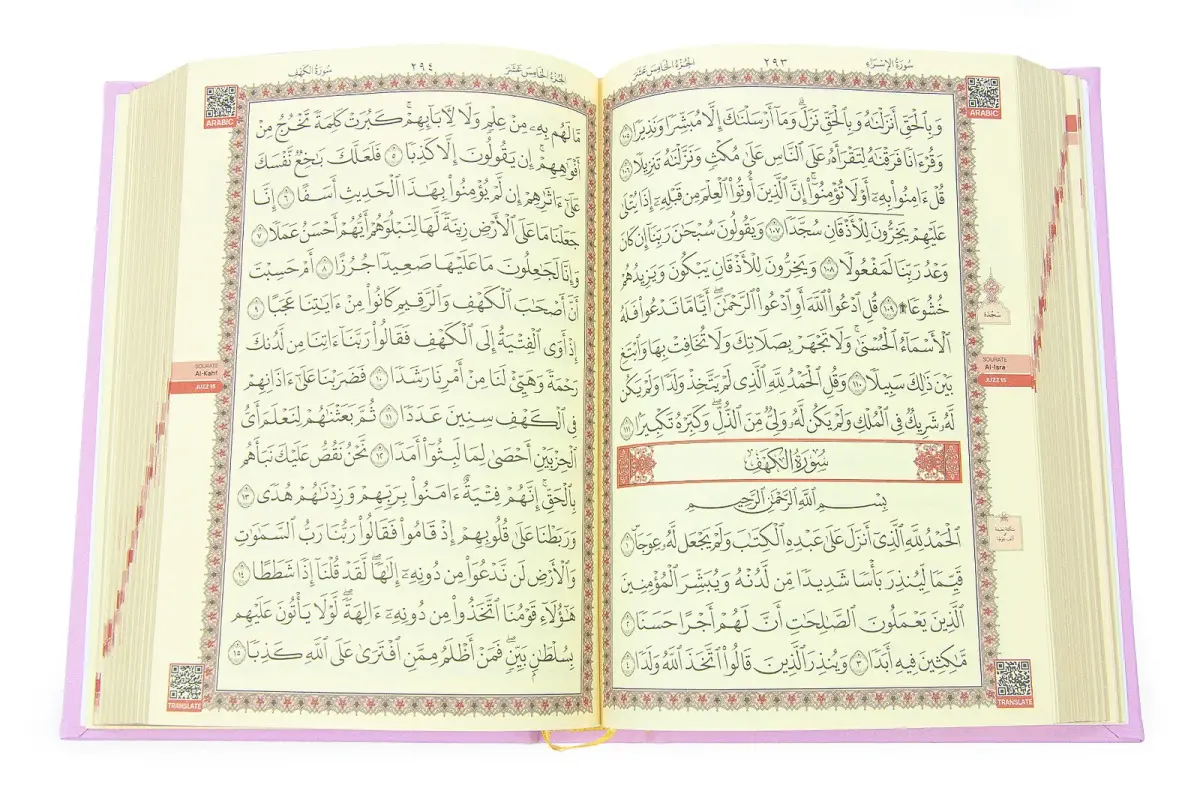 سُورَةُ الإِسْرَاءِ
٢٩٣
الجُزْءُ الخَامِسَ عَشَرَ
ARABIC
وَبِٱلْحَقِّ أَنزَلْنَٰهُ وَبِٱلْحَقِّ نَزَلَ ۗ وَمَآ أَرْسَلْنَٰكَ إِلَّا مُبَشِّرًا وَنَذِيرًا ١٠٥
وَقُرْءَانًا فَرَقْنَٰهُ لِتَقْرَأَهُۥ عَلَى ٱلنَّاسِ عَلَىٰ مُكْثٍ وَنَزَّلْنَٰهُ تَنزِيلًا ١٠٦
قُلْ ءَامِنُوا۟ بِهِۦٓ أَوْ لَا تُؤْمِنُوٓا۟ ۚ إِنَّ ٱلَّذِينَ أُوتُوا۟ ٱلْعِلْمَ مِن قَبْلِهِۦٓ إِذَا يُتْلَىٰ
عَلَيْهِمْ يَخِرُّونَ لِلْأَذْقَانِ سُجَّدًا ١٠٧ وَيَقُولُونَ سُبْحَٰنَ رَبِّنَآ إِن كَانَ
وَعْدُ رَبِّنَا لَمَفْعُولًا ١٠٨ وَيَخِرُّونَ لِلْأَذْقَانِ يَبْكُونَ وَيَزِيدُهُمْ
خُشُوعًا ۩ ١٠٩ قُلِ ٱدْعُوا۟ ٱللَّهَ أَوِ ٱدْعُوا۟ ٱلرَّحْمَٰنَ ۖ أَيًّا مَّا تَدْعُوا۟ فَلَهُ
ٱلْأَسْمَآءُ ٱلْحُسْنَىٰ ۚ وَلَا تَجْهَرْ بِصَلَاتِكَ وَلَا تُخَافِتْ بِهَا وَٱبْتَغِ
بَيْنَ ذَٰلِكَ سَبِيلًا ١١٠ وَقُلِ ٱلْحَمْدُ لِلَّهِ ٱلَّذِى لَمْ يَتَّخِذْ وَلَدًا وَلَمْ يَكُن
لَّهُۥ شَرِيكٌ فِى ٱلْمُلْكِ وَلَمْ يَكُن لَّهُۥ وَلِىٌّ مِّنَ ٱلذُّلِّ ۖ وَكَبِّرْهُ تَكْبِيرًۢا ١١١
سُورَةُ الكَهْفِ
بِسْمِ ٱللَّهِ ٱلرَّحْمَٰنِ ٱلرَّحِيمِ
ٱلْحَمْدُ لِلَّهِ ٱلَّذِىٓ أَنزَلَ عَلَىٰ عَبْدِهِ ٱلْكِتَٰبَ وَلَمْ يَجْعَل لَّهُۥ عِوَجَا ۜ ١
قَيِّمًا لِّيُنذِرَ بَأْسًا شَدِيدًا مِّن لَّدُنْهُ وَيُبَشِّرَ ٱلْمُؤْمِنِينَ
ٱلَّذِينَ يَعْمَلُونَ ٱلصَّٰلِحَٰتِ أَنَّ لَهُمْ أَجْرًا حَسَنًا ٢
مَّٰكِثِينَ فِيهِ أَبَدًا ٣ وَيُنذِرَ ٱلَّذِينَ قَالُوا۟ ٱتَّخَذَ ٱللَّهُ وَلَدًا ٤
سَجْدَة
SOURATE
Al-Isra
JUZZ 15
TRANSLATE
سُورَةُ الكَهْفِ
٢٩٤
الجُزْءُ الخَامِسَ عَشَرَ
ARABIC
مَّا لَهُم بِهِۦ مِنْ عِلْمٍ وَلَا لِءَابَآئِهِمْ ۚ كَبُرَتْ كَلِمَةً تَخْرُجُ مِنْ
أَفْوَٰهِهِمْ ۚ إِن يَقُولُونَ إِلَّا كَذِبًا ٥ فَلَعَلَّكَ بَٰخِعٌ نَّفْسَكَ
عَلَىٰٓ ءَاثَٰرِهِمْ إِن لَّمْ يُؤْمِنُوا۟ بِهَٰذَا ٱلْحَدِيثِ أَسَفًا ٦ إِنَّا
جَعَلْنَا مَا عَلَى ٱلْأَرْضِ زِينَةً لَّهَا لِنَبْلُوَهُمْ أَيُّهُمْ أَحْسَنُ عَمَلًا ٧
وَإِنَّا لَجَٰعِلُونَ مَا عَلَيْهَا صَعِيدًا جُرُزًا ٨ أَمْ حَسِبْتَ
أَنَّ أَصْحَٰبَ ٱلْكَهْفِ وَٱلرَّقِيمِ كَانُوا۟ مِنْ ءَايَٰتِنَا عَجَبًا ٩
إِذْ أَوَى ٱلْفِتْيَةُ إِلَى ٱلْكَهْفِ فَقَالُوا۟ رَبَّنَآ ءَاتِنَا مِن لَّدُنكَ
رَحْمَةً وَهَيِّئْ لَنَا مِنْ أَمْرِنَا رَشَدًا ١٠ فَضَرَبْنَا عَلَىٰٓ ءَاذَانِهِمْ
فِى ٱلْكَهْفِ سِنِينَ عَدَدًا ١١ ثُمَّ بَعَثْنَٰهُمْ لِنَعْلَمَ أَىُّ
ٱلْحِزْبَيْنِ أَحْصَىٰ لِمَا لَبِثُوٓا۟ أَمَدًا ١٢ نَّحْنُ نَقُصُّ عَلَيْكَ نَبَأَهُم
بِٱلْحَقِّ ۚ إِنَّهُمْ فِتْيَةٌ ءَامَنُوا۟ بِرَبِّهِمْ وَزِدْنَٰهُمْ هُدًى ١٣
وَرَبَطْنَا عَلَىٰ قُلُوبِهِمْ إِذْ قَامُوا۟ فَقَالُوا۟ رَبُّنَا رَبُّ ٱلسَّمَٰوَٰتِ
وَٱلْأَرْضِ لَن نَّدْعُوَا۟ مِن دُونِهِۦٓ إِلَٰهًا ۖ لَّقَدْ قُلْنَآ إِذًا شَطَطًا ١٤
هَٰٓؤُلَآءِ قَوْمُنَا ٱتَّخَذُوا۟ مِن دُونِهِۦٓ ءَالِهَةً ۖ لَّوْلَا يَأْتُونَ عَلَيْهِم
بِسُلْطَٰنٍۭ بَيِّنٍ ۖ فَمَنْ أَظْلَمُ مِمَّنِ ٱفْتَرَىٰ عَلَى ٱللَّهِ كَذِبًا ١٥
SOURATE
Al-Kahf
JUZZ 15
TRANSLATE